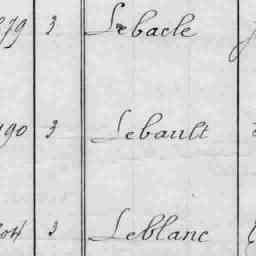 279 3 Lebacle
290 3 Lebault
304 3 Leblanc